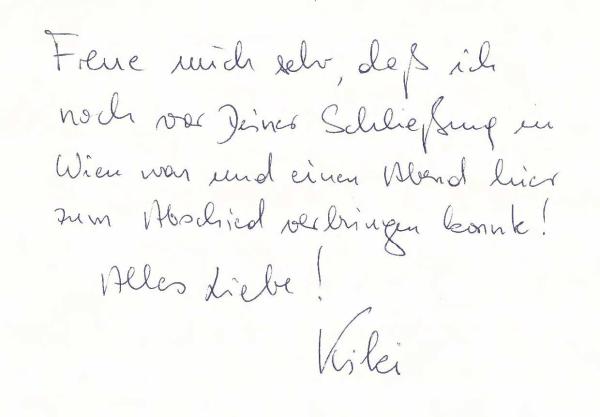 Freue mich sehr, daß ich
noch vor Deiner Schließung in
Wien war und einen Abend hier
zum Abschied verbringen konnte!
Alles Liebe!
Kiki